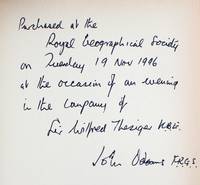 Purchased at the
Royal Geographical Society
on Tuesday 19 Nov 1996
at the occasion of an evening
in the company of
Sir Wilfred Thesiger KBE.
John Adams F.R.G.S.